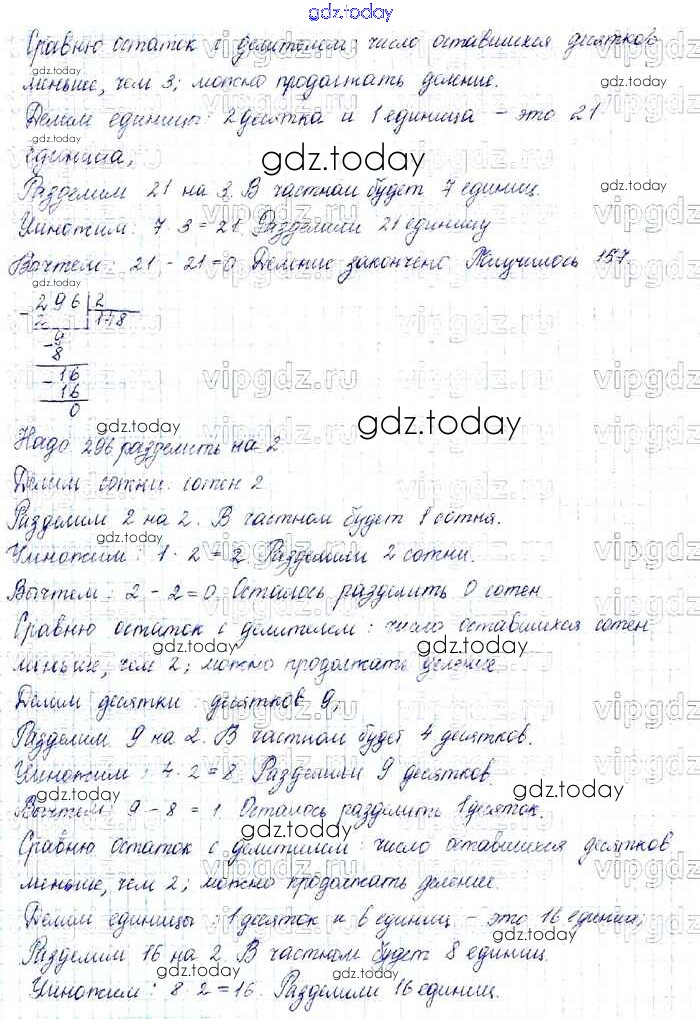 gdz.today
Сравню остаток с делителем: число оставшихся десятков
меньше, чем 3; можно продолжать деление.
Делим единицы: 2 десятка и 1 единица – это 21
единица;
gdz.today
Разделим 21 на 3. В частном будет 7 единиц.
Умножим: 7 · 3 = 21. Разделили 21 единицу
Вычтем: 21 - 21 = 0. Деление закончено. Получилось 157
296 | 2
2 | 148
- 9
8
- 16
16
0
gdz.today
Надо 296 разделить на 2
Делим сотни: сотен 2
Разделим 2 на 2. В частном будет 1 сотня.
Умножим: 1 · 2 = 2. Разделили 2 сотни.
Вычтем: 2 - 2 = 0. Осталось разделить 0 сотен
Сравню остаток с делителем: число оставшихся сотен
меньше, чем 2; можно продолжать деление
Делим десятки: десятков 9;
Разделим 9 на 2. В частном будет 4 десятков.
Умножим: 4 · 2 = 8. Разделили 9 десятков.
Вычтем: 9 - 8 = 1. Осталось разделить 1 десяток.
Сравню остаток с делителем: число оставшихся десятков
меньше, чем 2; можно продолжать деление.
Делим единицы: 1 десяток и 6 единиц – это 16 единиц;
Разделим 16 на 2. В частном будет 8 единиц.
Умножим: 8 · 2 = 16. Разделили 16 единиц.